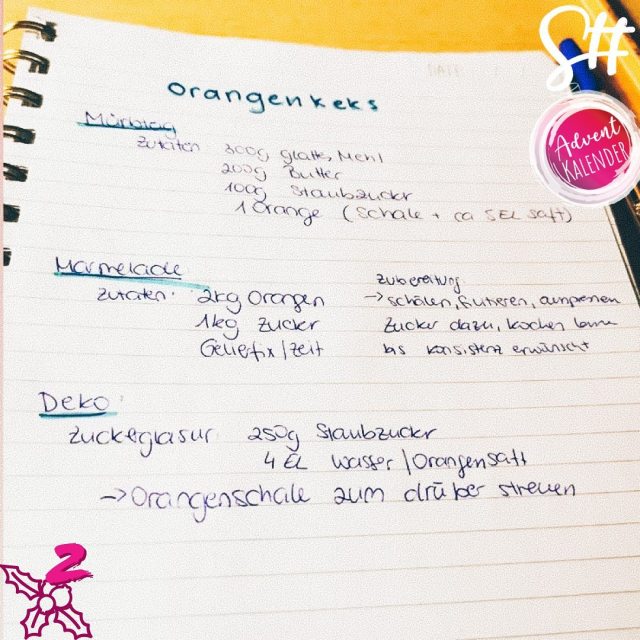 Stt
Advent
KALENDER
DATE
Orangenkeks
Mürbteig
Zutaten 300g glattes Mehl
200g Butter
100g Staubzucker
1 Orange (Schale + ca 5EL Saft)
Marmelade
Zutaten: 2kg Orangen
1kg Zucker
Gelierfix/Zeit
Zubereitung
→ schälen, auspressen
Zucker dazu, kochen
bis Konsistenz erwünscht
Deko:
Zuckeglasur 250g Staubzucker
4 EL Wasser/Orangensaft
→ Orangenschale zum drüber streuen
2